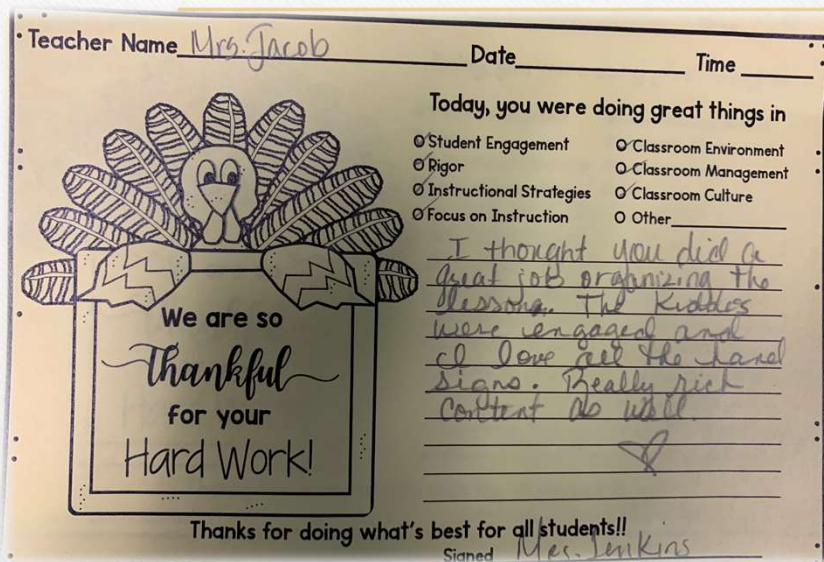 Teacher Name Mrs. Jacob Date Time
Today, you were doing great things in
Student Engagement
Rigor
Instructional Strategies
Focus on Instruction
Classroom Environment
Classroom Management
Classroom Culture
Other
I thought you did a
great job organizing the
lessons. The Kiddos
were engaged and
I love all the hand
signs. Really rich
content as well.
We are so
Thankful
for your
Hard Work!
Thanks for doing what's best for all students!!
Signed Mrs. Jenkins